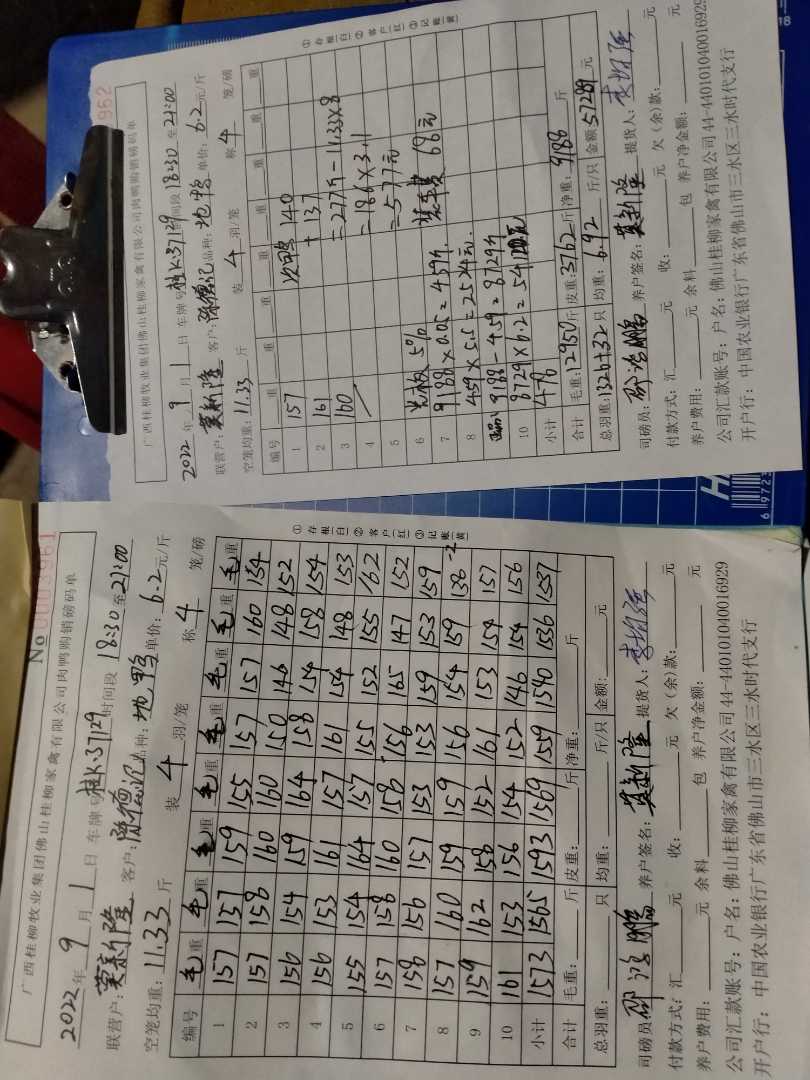 广西桂柳牧业集团佛山桂柳家禽有限公司肉鸭购销磅码单
No 0003961
2022年 9 月 1 日 车牌号 桂K·37129 时间段 18:30至21:00
联营户: 莫新隆 客户: 品种: 地鸭 单价: 6.2元/斤
空笼均重: 11.33 斤 装 4 羽/笼 称 4 笼/磅
编号 毛重 毛重 毛重 毛重 毛重 毛重 毛重 毛重
1 157 157 159 155 157 157 160 154
2 157 158 160 160 150 146 148 152
3 156 154 159 164 158 154 158 154
4 156 153 161 157 161 154 148 153
5 155 154 164 157 155 152 155 162
6 157 158 160 158 156 165 147 152
7 158 156 157 153 153 159 153 159
8 157 160 159 159 156 154 159 138 -2
9 159 162 158 152 161 153 154 157
10 161 153 156 154 152 146 154 156
小计 1573 1565 1593 1569 1559 1540 1536 1537
合计 毛重: 斤 皮重: 斤 净重: 斤
总羽重: 只 均重: 斤/只 金额: 元
司磅员: 养户签名: 莫新隆 提货人:
付款方式: 汇 元 收: 元 欠(余)款: 元
养户费用: 元 余料 包 养户净金额: 元
公司汇款账号: 户名: 佛山桂柳家禽有限公司44-440101040016929
开户行: 中国农业银行广东省佛山市三水区三水时代支行
①存根(白)②客户(红)③记账(黄)
广西桂柳牧业集团佛山桂柳家禽有限公司肉鸭购销磅码单
962
2022年 9 月 1 日 车牌号 桂K·37129 时间段 18:30 至 21:00
联营户: 莫新隆 客户: 品种: 地鸭 单价: 6.2元/斤
空笼均重: 11.33 斤 装 4 羽/笼 称 4 笼/磅
编号 重 重 重 重 重 重
1 157 次鸭 140
2 161 +137
3 160 =277斤-11.33×8
4 =186×3.1
5 =577元
6 5% 装车费 68元
7 9188×0.05=459斤
8 459×5.5=2524元
9188-459=8729斤
10 8729×6.2=54
小计 478
合计 毛重: 12950斤 皮重: 3762斤 净重: 9188 斤
总羽重: 1326+32只 均重: 6.92 斤/只 金额 57289元
司磅员: 养户签名: 莫新隆 提货人:
付款方式: 汇 元 收: 元 欠(余)款: 元
养户费用: 元 余料 包 养户净金额: 元
公司汇款账号: 户名: 佛山桂柳家禽有限公司44-440101040016929
开户行: 中国农业银行广东省佛山市三水区三水时代支行
①存根(白)②客户(红)③记账(黄)